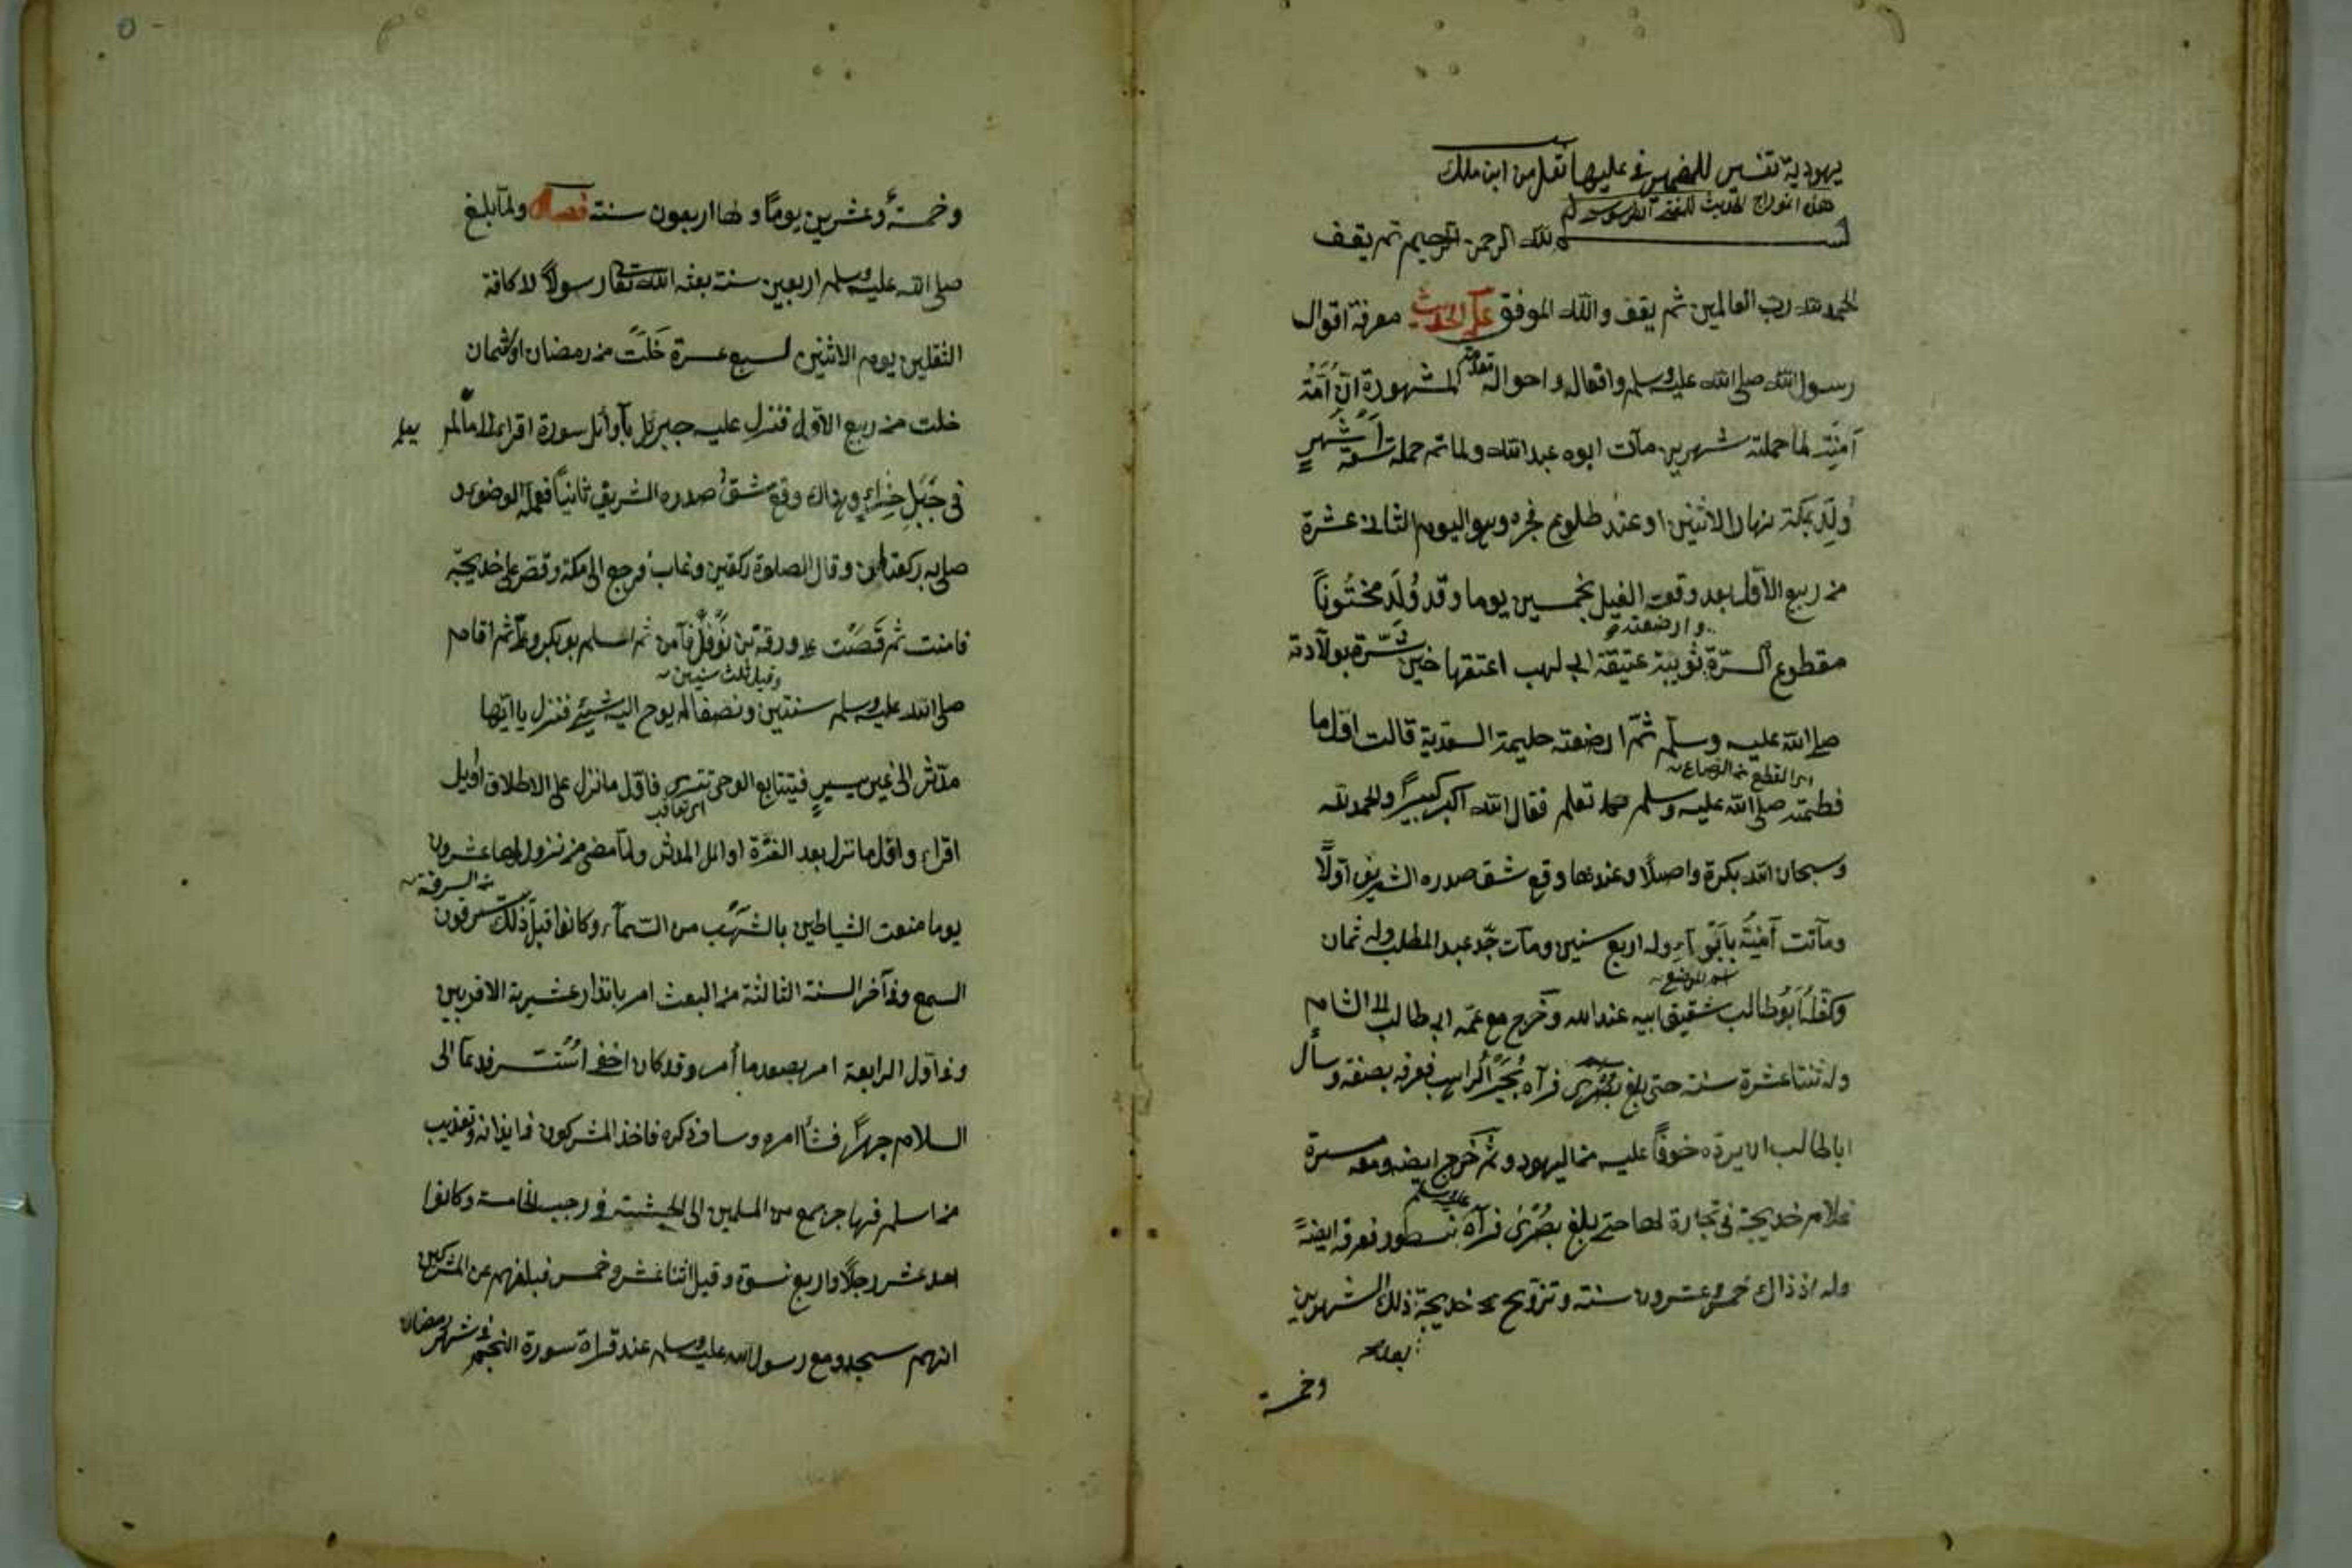 يهودية تفسير للضمير في عليها نقل من ابن ملك
هذا انموذج الحديث
بسم الله الرحمن الرحيم ثم يقف
الحمد لله رب العالمين ثم يقف والله الموفق علم الحديث معرفة اقوال
رسول الله صلى الله عليه وسلم وافعاله واحواله مقدمة المشهورة ان امه
آمنة لما حملته شهرين مات ابوه عبدالله ولما تم حمله تسعة اشهر
ولد بمكة نهار الاثنين او عند طلوع فجره وهو اليوم الثاني عشرة
من ربيع الاول بعد وقعت الفيل بخمسين يوما وقد ولد مختونا
وارضعته
مقطوع السرة ثويبة عتيقة ابي لهب اعتقها حين بشرة بولادته
صلى الله عليه وسلم ثم ارضعته حليمة السعدية قالت اول ما
اى القطع من الرضاع
فطمته صلى الله عليه وسلم تعلم فقال الله اكبر كبيرا والحمد لله
وسبحان الله بكرة واصيلا وعندها وقع شق صدره الشريف اولا
وماتت آمنة بابواء وله اربع سنين ومات جد عبد المطلب وله ثمان
اسم الموضع
وكفله ابو طالب شقيق ابيه عبد الله وخرج مع عمه ابي طالب الى الشام
وله ثنتا عشرة سنة حتى بلغ بصرى فرآه بحيرا الراهب فعرفه بصفته وسأل
ابا طالب ان يرده خوفا عليه من اليهود وثم خرج ايضا ومعه ميسرة
عليه وسلم
غلام خديجة في تجارة لها حتى بلغ بصرى فرآه نسطور فعرفه ايضا
وله اذ ذاك خمس وعشرون سنة وتزوج خديجة ذلك الشهرين
بعد
وخمسة
وخمسة وعشرين يوما ولها اربعون سنة فصل ولما بلغ
صلى الله عليه وسلم اربعين سنة بعثه الله تعالى رسولا لا كافة
الثقلين يوم الاثنين لسبع عشرة خلت من رمضان او ثمان
خلت من ربيع الاول فنزل عليه جبريل بأوائل سورة اقرا الى ما لم يعلم
في جبل حراء وهناك وقع شق صدره الشريف ثانيا فعلمه الوضوء و
صلى به ركعتين وقال الصلوة ركعتين وغاب فرجع الى مكة وقص على خديجة
فامنت ثم قصت على ورقة بن نوفل فآمن ثم اسلم بو بكر وعلى ثم اقام
وقيل ثلث سنين
صلى الله عليه وسلم سنتين ونصفا لم يوح اليه شيئ فنزل يا ايها
مدثر الى غير يسير فيتتابع الوحى تترى فاول ما نزل على الاطلاق اوئل
اى تعاقب
اقراء واول ما نزل بعد الفترة اوائل المدثر ولما مضى من نزول لها عشرون
من السرقة
يوما منعت الشياطين بالشهب من السماء وكانوا قبل ذلك يسرقون
السمع وفي آخر السنة الثالثة من البعث امر بانذار عشيرته الاقربين
وفي اول الرابعة امر بصدع ما أمر وقد كان اخفى استتر فدعا الى
السلام جهرا فشا امره وسا ذكره فاخذ المشركون في ايذائه وتعذيب
من اسلم فهاجر جمع من المسلمين الى الحبشة في رجب الخامسة وكانوا
احد عشر رجلا واربع نسوة وقيل اثنا عشر وخمس فبلغهم عن المشركين
انهم سجدو مع رسول الله عليه وسلم عند قراة سورة النجم في شهر رمضان